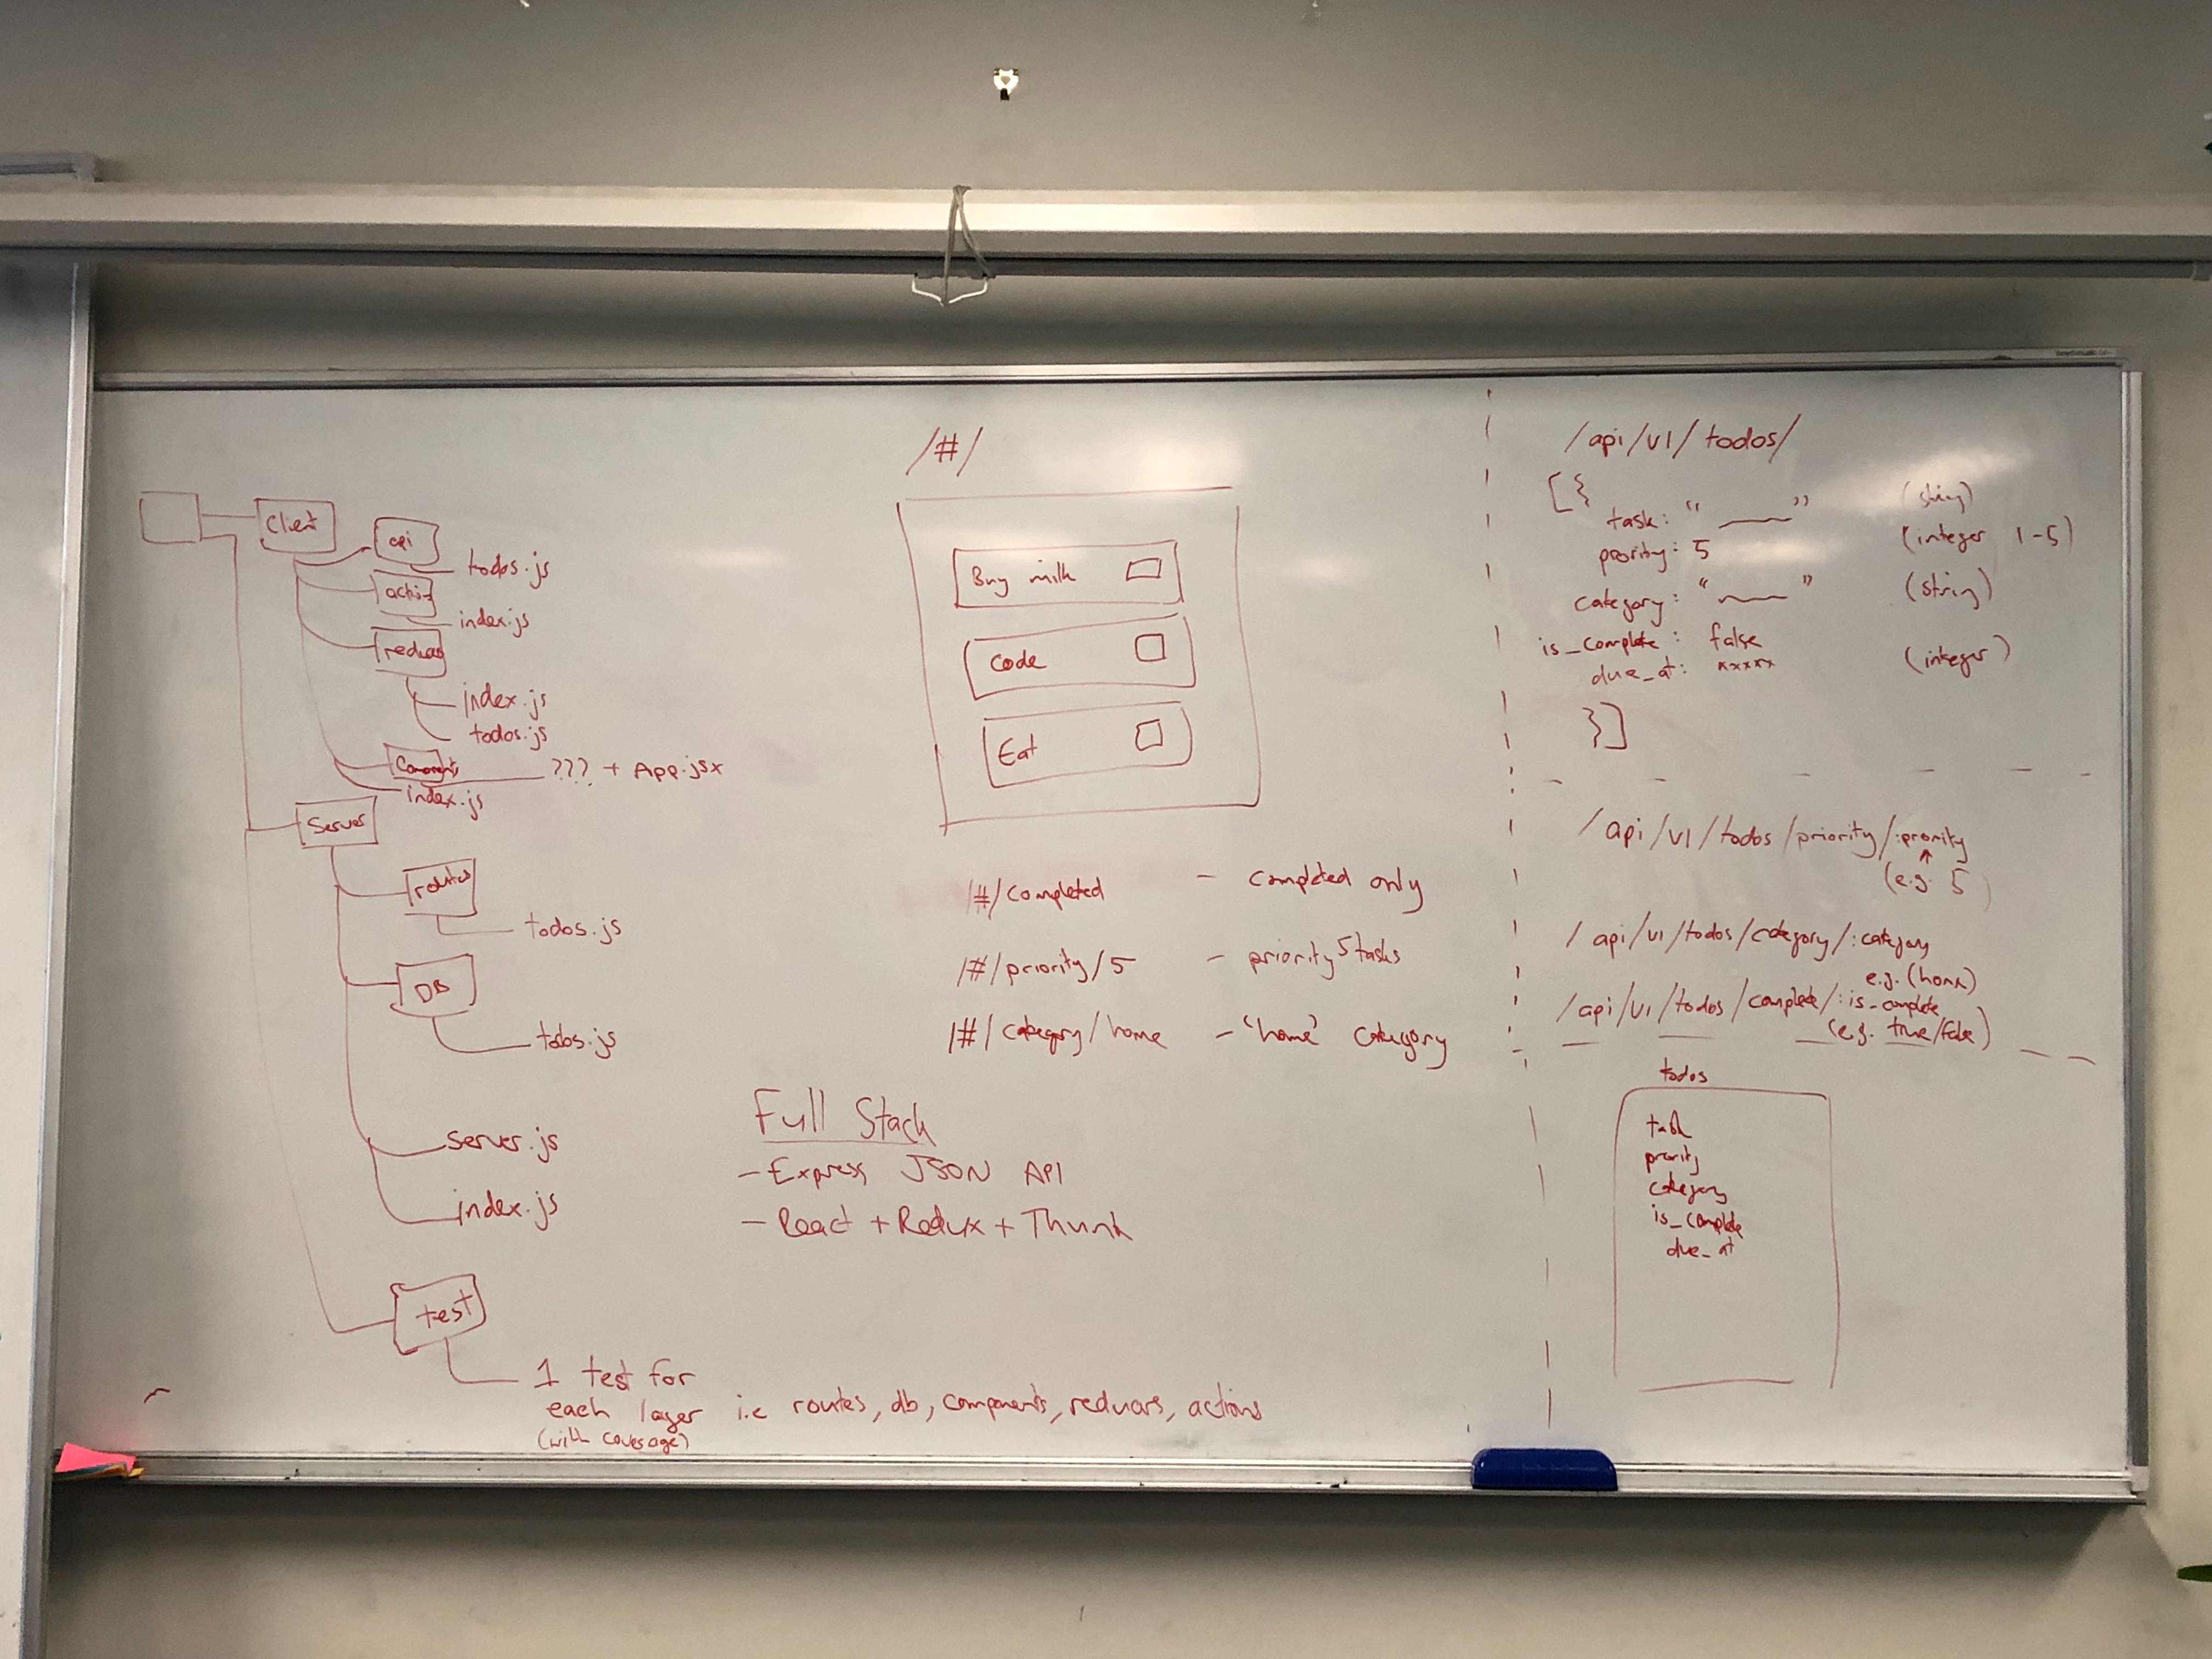 Client
api
todos.js
index.js
index.js
todos.js
??? + App.jsx
index.js
Server
routes
todos.js
DB
todos.js
server.js
index.js
test
1 test for
each layer i.e routes, db, components, reducers, actions
(with coverage)
/#/
Buy milk
Code
Eat
/#/completed - completed only
/#/priority/5 - priority 5 tasks
/#/category/home - 'home' category
Full Stack
- Express JSON API
- React + Redux + Thunk
/api/v1/todos/
[{
task: " " (string)
priority: 5 (integer 1-5)
category: " " (string)
is_complete: false
due_at: xxxxx (integer)
}]
/api/v1/todos/priority/:priority
(e.g. 5
/api/v1/todos/category/:category
e.g. (home)
/api/v1/todos/complete/:is_complete
(e.g. true/false)
todos
task
priority
category
is_complete
due_at